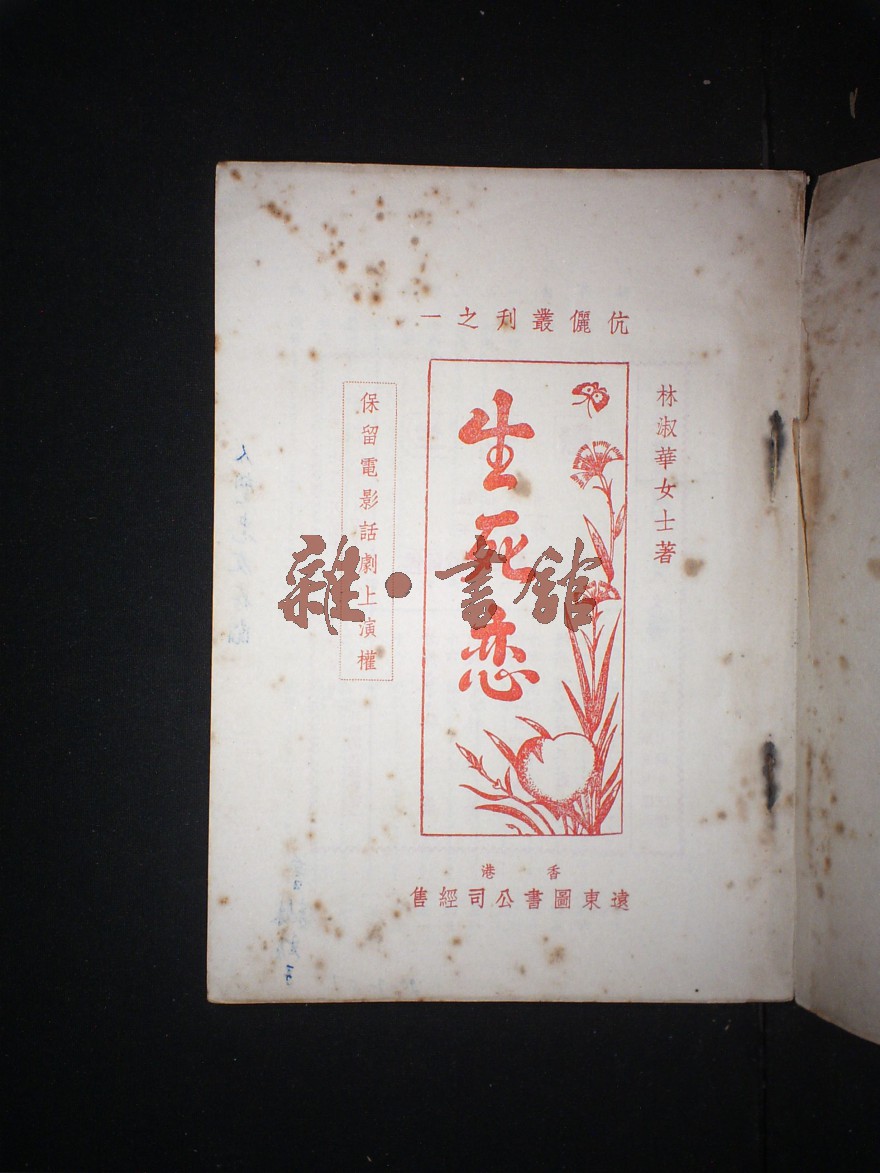 伉儷叢刊之一
林淑華女士著
生死恋
保留電影話劇上演權
香港
遠東圖書公司經售
雜·書館